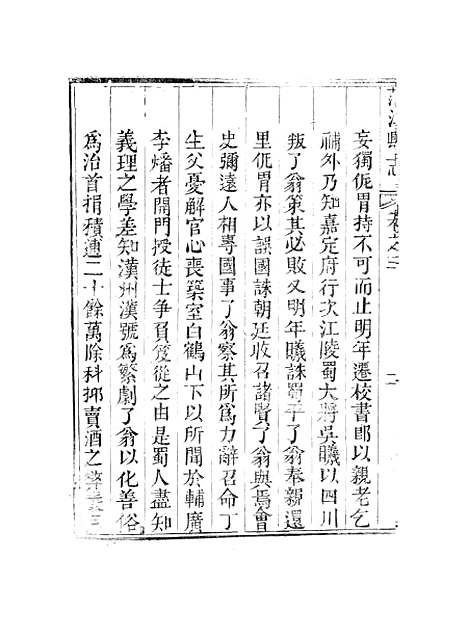 妄獨侂冑持不可而止明年遷校書郎以親老乞
補外乃知嘉定府行次江陵蜀大將吳曦以四川
叛了翁策其必敗又明年曦誅蜀平了翁奉親還
里侂冑亦以誤國誅朝廷收召諸賢了翁與焉會
史彌遠入相專國事了翁察其所爲力辭召命丁
生父憂解官心喪築室白鶴山下以所聞於輔廣
李燔者開門授徒士爭負笈從之由是蜀人盡知
義理之學差知漢州漢號爲繁劇了翁以化善俗
爲治首捐積逋二十餘萬除科抑賣酒之弊嚴